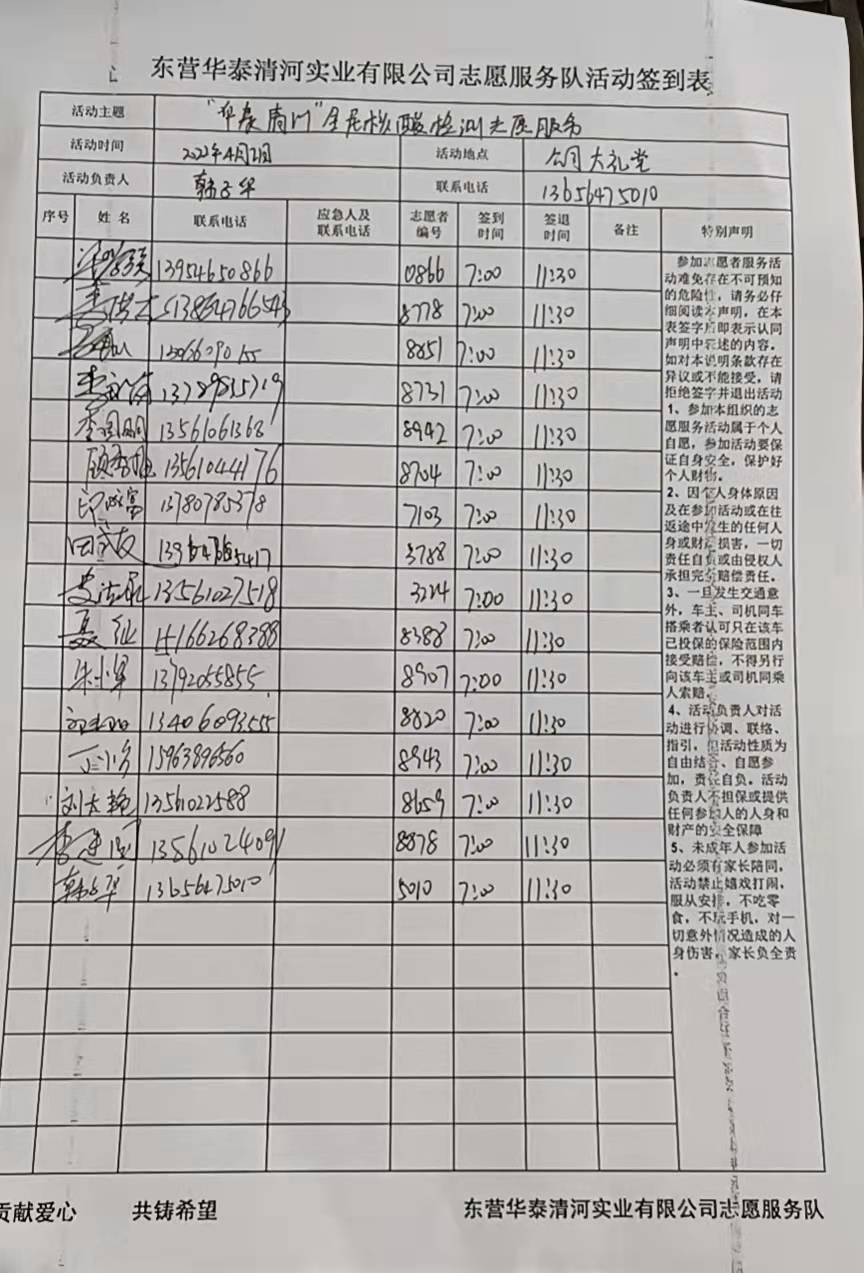 东营华泰清河实业有限公司志愿服务队活动签到表
活动主题 全员核酸检测志愿服务
活动时间 2022年4月2日 活动地点 公司大礼堂
活动负责人 韩子华 联系电话 13656475010
序号 姓名 联系电话 应急人及联系电话 志愿者编号 签到时间 签退时间 备注 特别声明
13954650866 0866 7:00 11:30
13864766543 8778 7:00 11:30
8851 7:00 11:30
8731 7:00 11:30
13561061368 8942 7:00 11:30
13561044176 8704 7:00 11:30
13780785378 7103 7:00 11:30
3788 7:00 11:30
13561027518 3224 7:00 11:30
聂 15166268388 8388 7:00 11:30
朱小军 13792055855 8907 7:00 11:30
13406093555 8820 7:00 11:30
15963896560 8943 7:00 11:30
刘太艳 13561022588 8659 7:00 11:30
李建国 13561024091 8878 7:00 11:30
韩子华 13656475010 5010 7:00 11:30
参加志愿者服务活
动难免存在不可预知
的危险性，请务必仔
细阅读本声明，在本
表签字后即表示认同
声明中表述的内容。
如对本说明条款存在
异议或不能接受，请
拒绝签字并退出活动
1、参加本组织的志
愿服务活动属于个人
自愿，参加活动要保
证自身安全，保护好
个人财物。
2、因个人身体原因
及在参加活动或在往
返途中发生的任何人
身或财产损害，一切
责任自负或由侵权人
承担完全赔偿责任。
3、一旦发生交通意
外，车主、司机同车
搭乘者认可只在该车
已投保的保险范围内
接受赔偿，不得另行
向该车主或司机同乘
人索赔。
4、活动负责人对活
动进行协调、联络、
指引，但活动性质为
自由结合、自愿参
加，责任自负。活动
负责人不担保或提供
任何参加人的人身和
财产的安全保障
5、未成年人参加活
动必须有家长陪同，
活动禁止嬉戏打闹，
服从安排，不吃零
食，不玩手机，对一
切意外情况造成的人
身伤害，家长负全责
。
贡献爱心 共铸希望 东营华泰清河实业有限公司志愿服务队